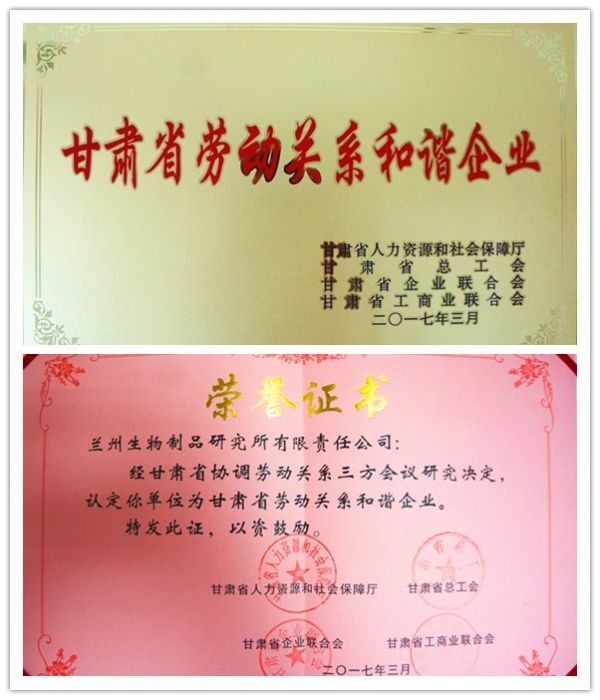 甘肃省劳动关系和谐企业
甘肃省人力资源和社会保障厅
甘肃省总工会
甘肃省企业联合会
甘肃省工商业联合会
二〇一七年三月
荣誉证书
兰州生物制品研究所有限责任公司:
经甘肃省协调劳动关系三方会议研究决定,
认定你单位为甘肃省劳动关系和谐企业。
特发此证,以资鼓励。
甘肃省人力资源和社会保障厅 甘肃省总工会
甘肃省企业联合会 甘肃省工商业联合会
二〇一七年三月